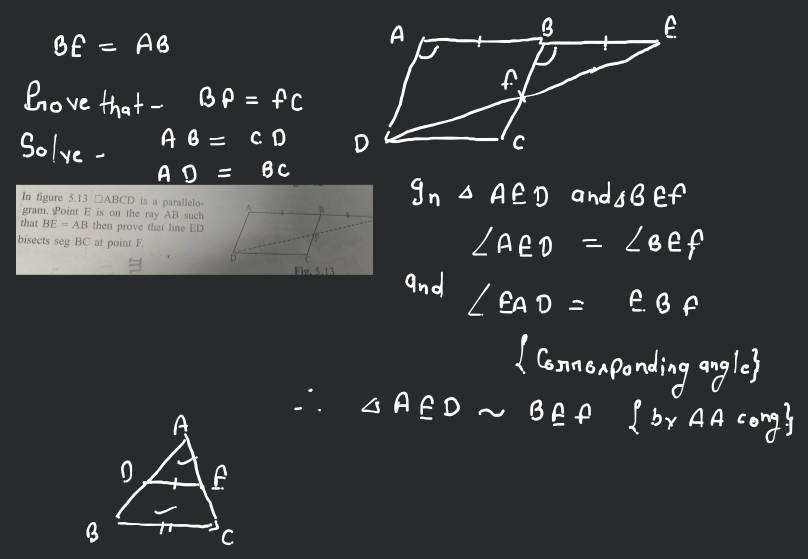 BE = AB
Prove that - BF = FC
Solve - AB = CD
AD = BC
In figure 5.13 □ABCD is a parallelo-
gram. Point E is on the ray AB such
that BE = AB then prove that line ED
bisects seg BC at point F.
A
B
D
C
Fig. 5.13
A
B
E
F
D
C
In △ AED and △ BEF
∠AED = ∠BEF
and ∠EAD = EBF
{Corrosponding angle}
∴ △ AED ~ BEF {by AA cong}
A
D
E
B
C